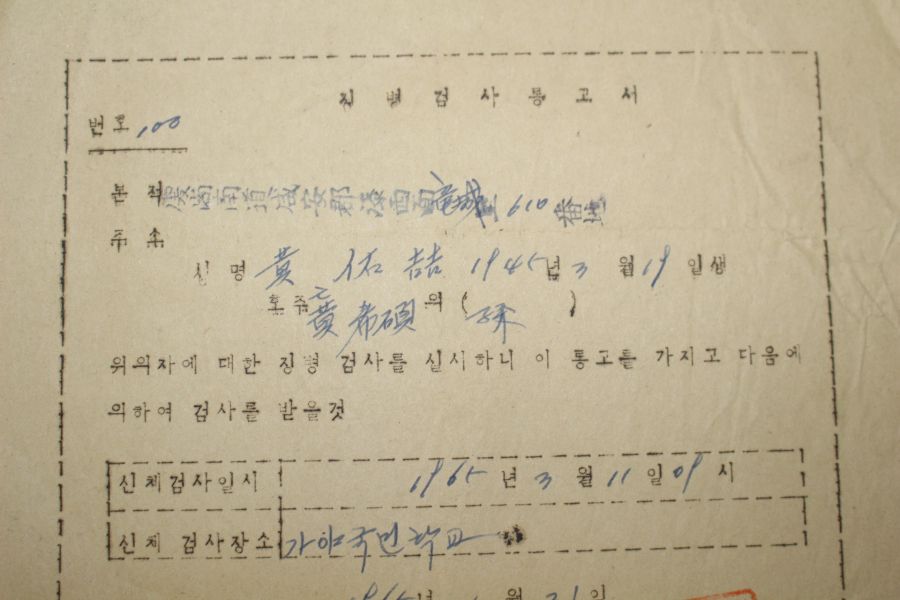 징병검사통고서
번호 100
본적 慶尙南道咸安郡漆西面竜城里 610 番地
주소
성명 黃佑喆 1945년 3 월 19 일생
호주 黃希碩 의 ( 孫 )
위의자에 대한 징병 검사를 실시하니 이 통고를 가지고 다음에
의하여 검사를 받을것
신체검사일시 1965 년 3 월 11 일 09 시
신체 검사장소 가야국민학교
1965년 월 21일